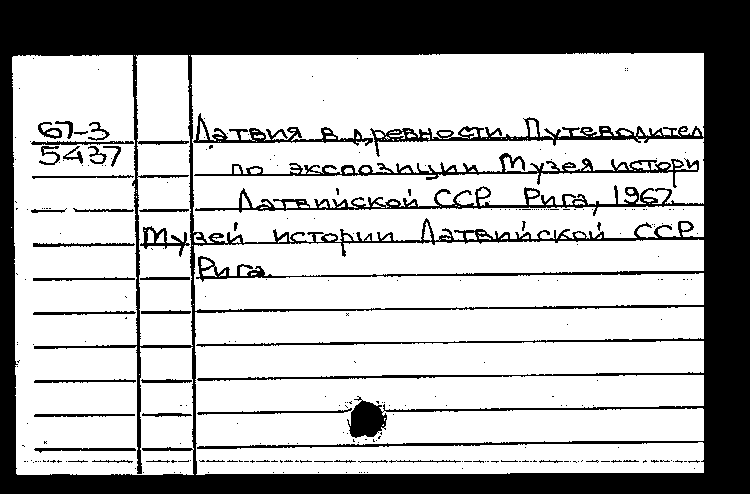 67-3
5437
Латвия в древности. Путеводител
по экспозиции Музея истори
Латвийской ССР Рига, 1967.
Музей истории Латвийской ССР
Рига.